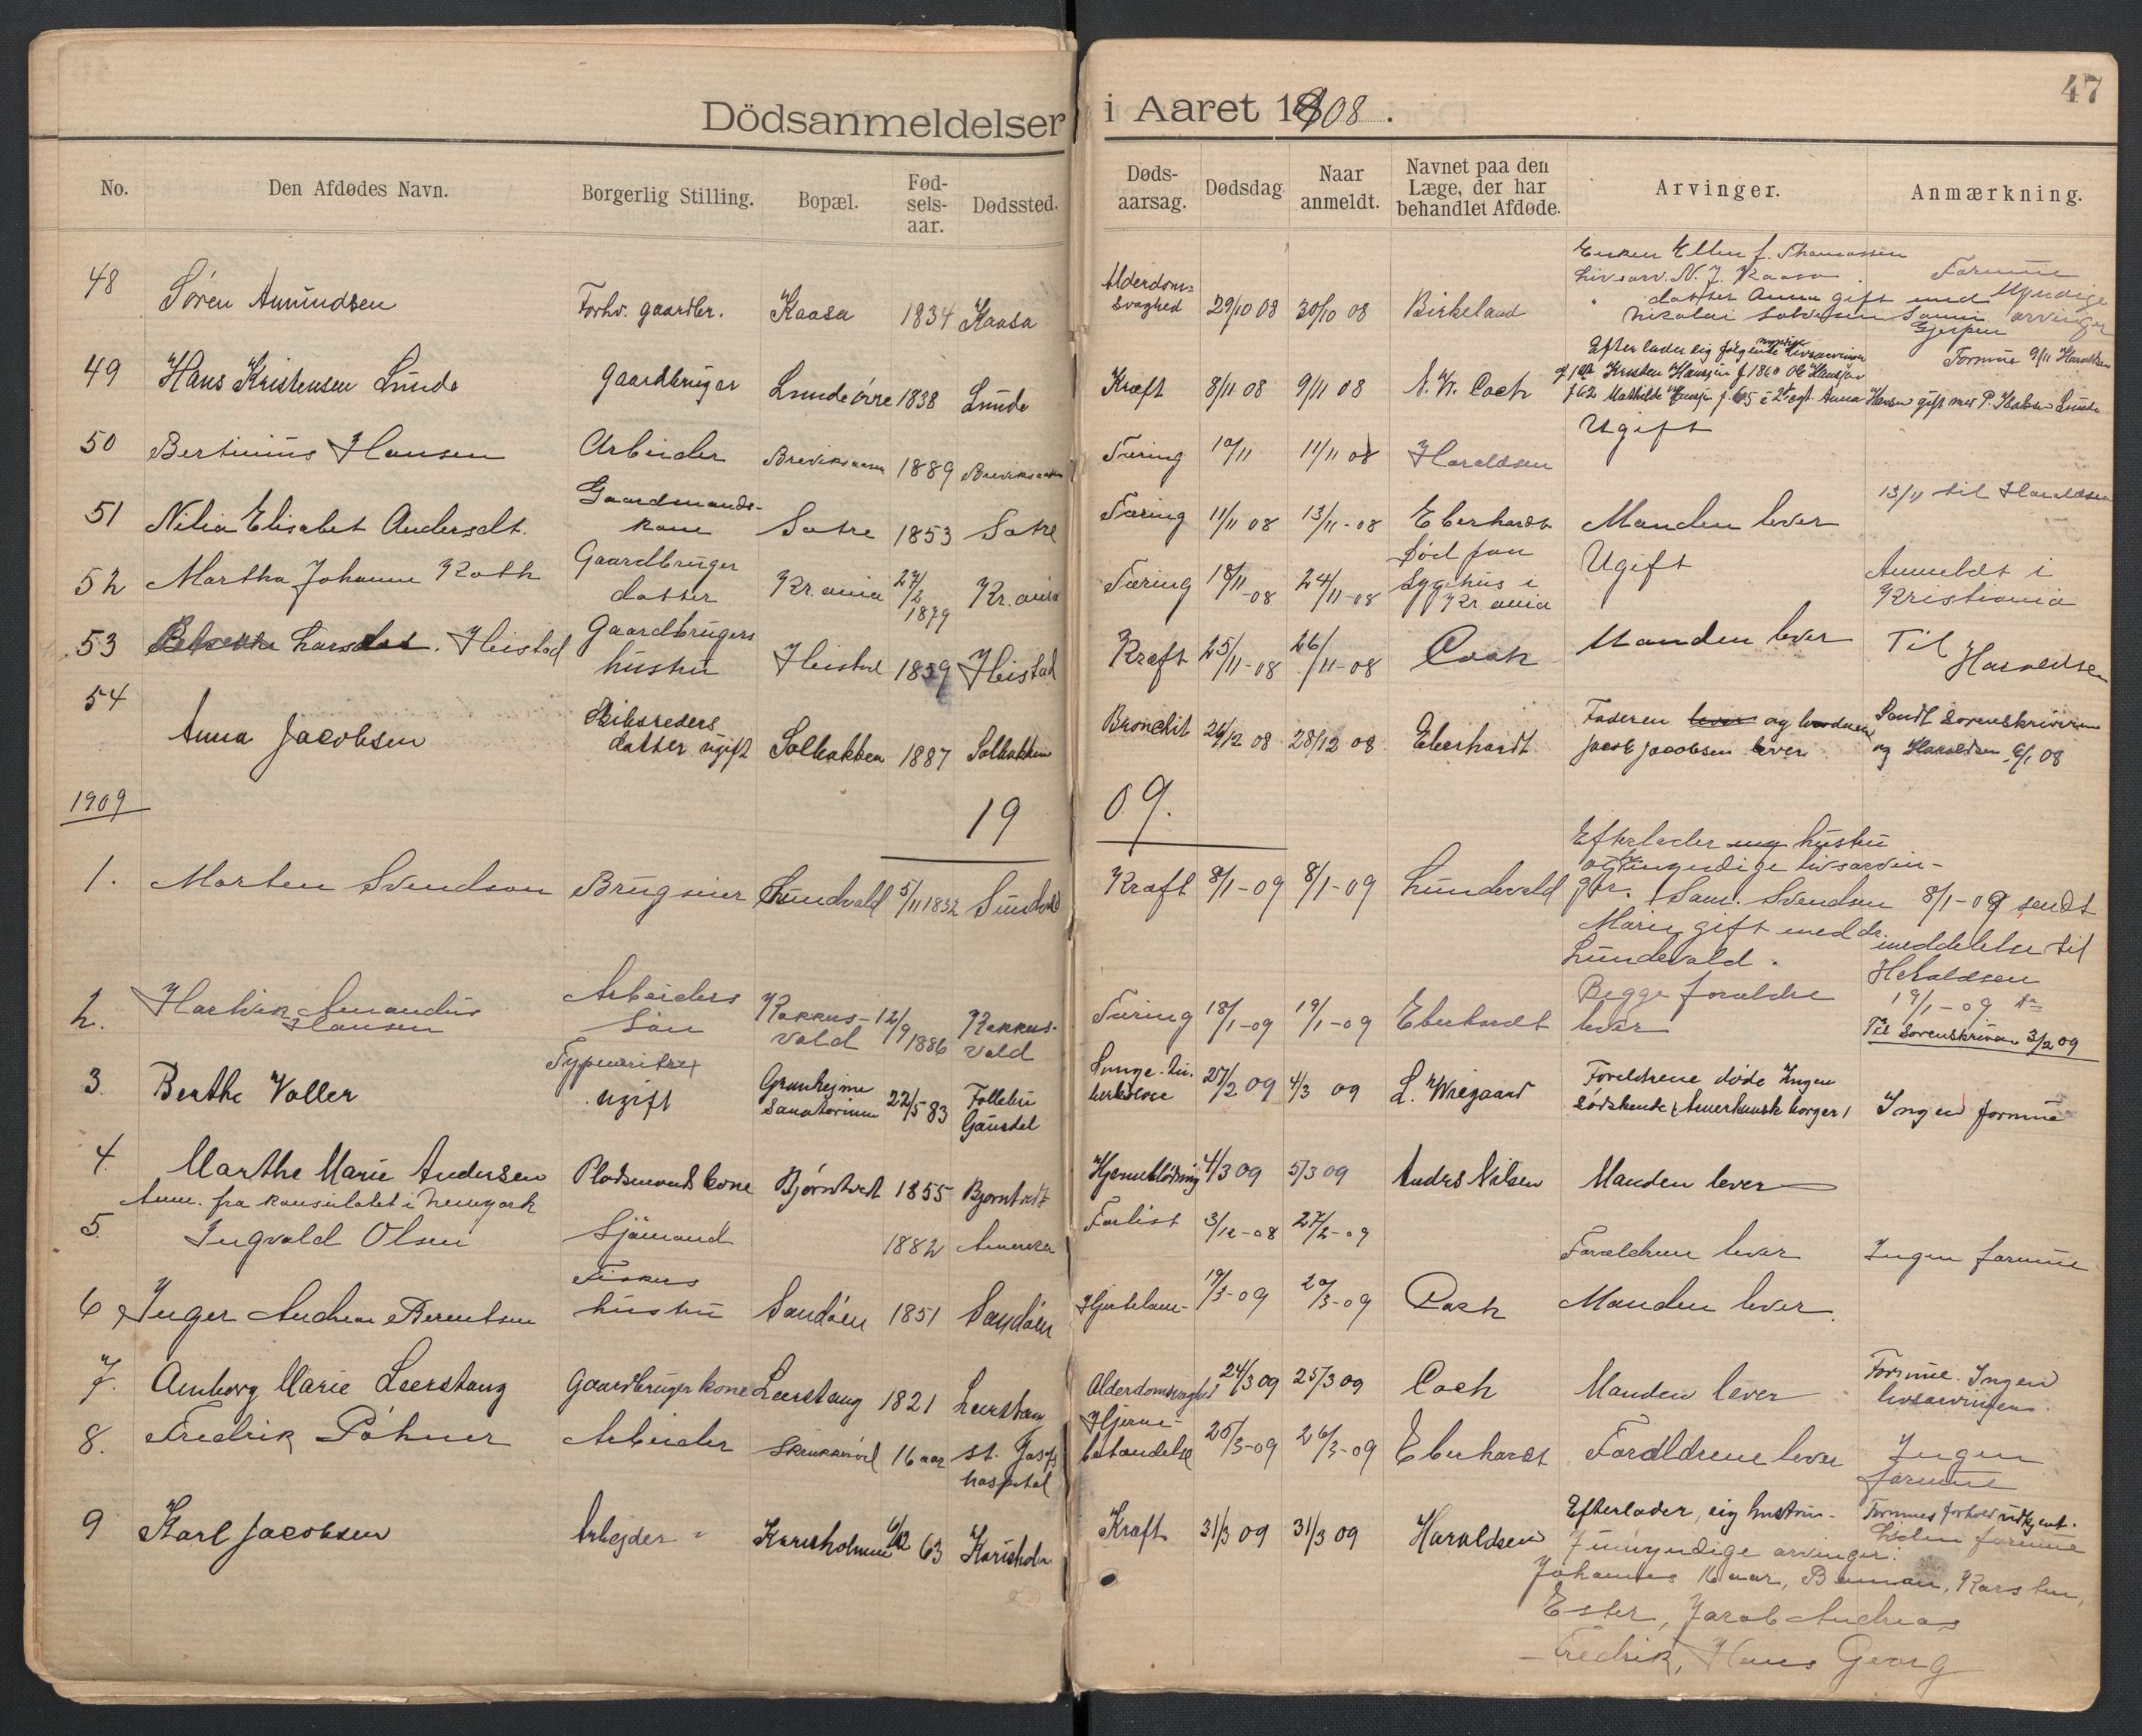 47
Dödsanmeldelser i Aaret 1908.
No. Den Afdødes Navn. Borgerlig Stilling. Bopæl. Fød-sels-aar. Dødssted. Døds-aarsag. Dødsdag Naar anmeldt. Navnet paa den Læge, der har behandlet Afdøde. Arvinger. Anmærkning.
48 Søren Amundsen Forhv. gaardbr. Kaasa 1834 Kaasa Alderdoms= svaghed 29/10 08 30/10 08 Birkeland Enken Ellen f. Thomassen
Livsarv. N. J. Kaasa Formue
datter Anna gift med Myndige
Nikolai Solvesen arvinger
Gjerpen
49 Hans Kristensen Lunde gaardbruger Lundeörre 1838 Lunde Kræft 8/11 08 9/11 08 N. W. Coch Efterlader sig følgende myndige livsarvinger Formue 9/11 Haraldsen
Kristen Hansen f. 1860 Ole Hansen
f 62 Mathilde Hansen f. 65 Anna Hansen gift med P. Lunde
50 Bertinius Hansen Arbeider Breviksaasen 1889 Breviksaasen Tæring 10/11 11/11 08 Haraldsen Ugift
51 Nilia Elisabet Andersdt. Gaardmands-kone Satre 1853 Satre Tæring 11/11 08 13/11-08 Eberhardt Manden lever 13/11 til Haraldsen
52 Martha Johanne Roth Gaardbruger datter Kr.ania 27/2 1879 Kr.ania Tæring 18/11-08 24/11-08 Død paa Sygehus i Kr.ania Ugift Anmeldt i Kristiania
53 Larsdat. Heistad Gaardbrugers hustru Heistad 1859 Heistad Kræft 25/11-08 26/11-08 Coch Manden lever Til Haraldsen
54 Anna Jacobsen Skibsreders datter ugift Solbakken 1887 Solbakken Bronchit 26/12 08 28/12 08 Eberhardt Faderen lever og
Jacob Jacobsen lever Sendt Sorenskriveren og Haraldsen 6/1 08
1909 19 09.
1. Morten Svendsen Brugseier Lundvald 5/11 1832 Sundvold Kræft 8/1-09 8/1-09 Lundevold Efterlader sig hustru
og myndige livsarvin-
ger. Sam. Svendsen 8/1-09 sendt
Marie gift med dr. meddelelse til
Lundevold. Haraldsen
2. Hartvik Amandus Hansen Arbeiders Søn Kokkus-vold 12/9 1886 Kokkus-vold Tæring 18/1-09 19/1-09 Eberhardt Begge forældre lever 19/1-09
Til Sorenskriver 3/2 09
3. Berthe Voller Typewriter ugift Granhejme Sanatorium 22/5 83 Follebu Gausdal Lunge-tu-berkulose 27/2 09 4/3 09 L. Wiegaard Foreldrene døde Ingen Södskende (Amerikansk borger) Ingen formue
4. Marthe Marie Andersen Pladsmands kone Bjørntvedt 1855 Bjørntvedt Hjerneblødning 4/3 09 5/3 09 Anders Nilsen Manden lever
Anm. fra konsulatet i Newyork
5. Ingvald Olsen Sjömand 1882 Amerika Forlist 3/12-08 27/2-09 Forældrene lever Ingen formue
6 Inger Andrea Berentsen Fiskers hustru Sandöen 1851 Sandöen Hjertelam- 19/3-09 20/3-09 Coch Manden lever.
7. Amborg Marie Leerstang Gaardbruger kone Leerstang 1821 Leerstang Alderdomsvaghed 24/3 09 25/3 09 Coch Manden lever Formue. Ingen livsarvinger.
8. Fredrik Pöhner Arbeider Skrukkeröd 16 aar St. Josefs hospital Hjerne-betændelse 25/3-09 26/3-09 Eberhardt Forældrene lever Ingen formue
9 Karl Jacobsen Arbejder Korsholmen 6/12 63 Korsholm Kræft 31/3 09 31/3 09 Haraldsen Efterlader sig hustru- Formues forhold udkjent.
7 umyndige arvinger. Liden formue
Johannes 16 aar, Karsten,
Ester, Jacob Andreas
Fredrik, Hans Georg